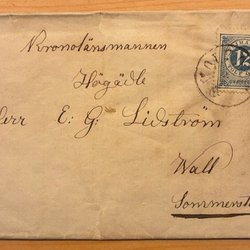 Kronolänsmannen
Högädle
Herr E: G. Lidström
Wall
12